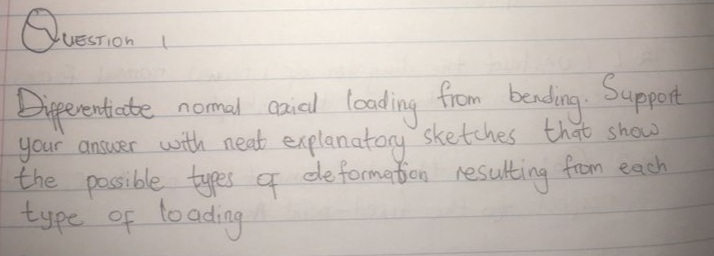 QUESTION 1
Differentiate normal axial loading from bending. Support
your answer with neat explanatory sketches that show
the possible types of deformation resulting from each
type of loading